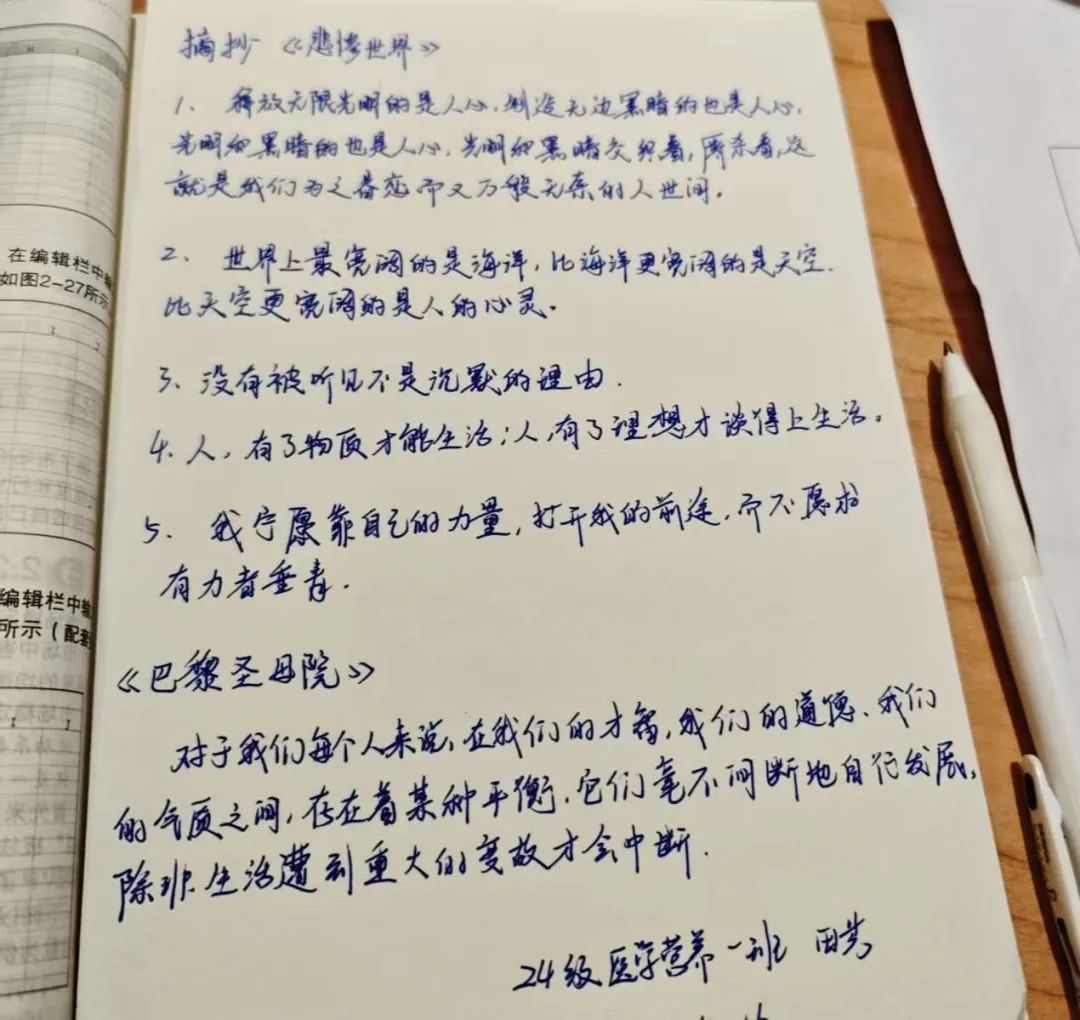 摘抄《悲惨世界》
1、释放无限光明的是人心，制造无边黑暗的也是人心，
光明和黑暗的也是人心，光明和黑暗交织着，厮杀着，这
就是我们为之眷恋而又万般无奈的人世间。
2、世界上最宽阔的是海洋，比海洋更宽阔的是天空.
比天空更宽阔的是人的心灵。
3、没有被听见不是沉默的理由.
4、人，有了物质才能生活；人，有了理想才谈得上生活。
5、我宁愿靠自己的力量，打开我的前途，而不愿求
有力者垂青.
《巴黎圣母院》
对于我们每个人来说，在我们的才智，我们的道德、我们
的气质之间，存在着某种平衡，它们毫不间断地自行发展，
除非生活遭到重大的变故才会中断.
24级医学营养一班 田
在编辑栏中输
如图2-27所示
编辑栏中输
所示（配套